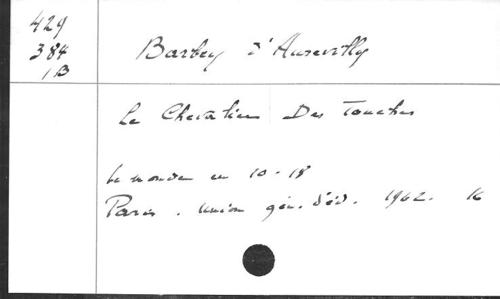 429
384
1B
Barbey d'Aurevilly
Le Chevalier Des Touches
Le monde en 10-18
Paris. Union gén. d'éd. 1962. 16